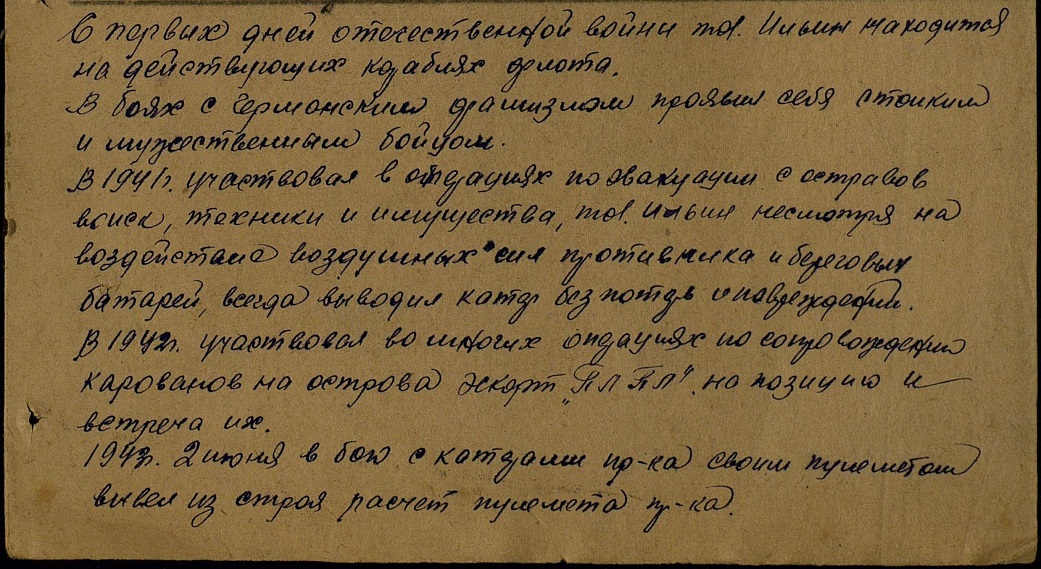 С первых дней отечественной войны тов. Ильин находится
на действующих кораблях флота.
В боях с германским фашизмом проявил себя стойким
и мужественным бойцом.
В 1941г. участвовал в операциях по эвакуации с островов
войск, техники и имущества, тов. Ильин несмотря на
воздействие воздушных сил противника и береговых
батарей, всегда выводил катер без потерь и повреждений.
В 1942г. участвовал во многих операциях по сопровождению
карованов на острова эскорт „ПЛ ПЛ" на позицию и
встреча их.
1943г. 2 июня в бою с катерами пр-ка своим пулеметом
вывел из строя расчет пулемета пр-ка.